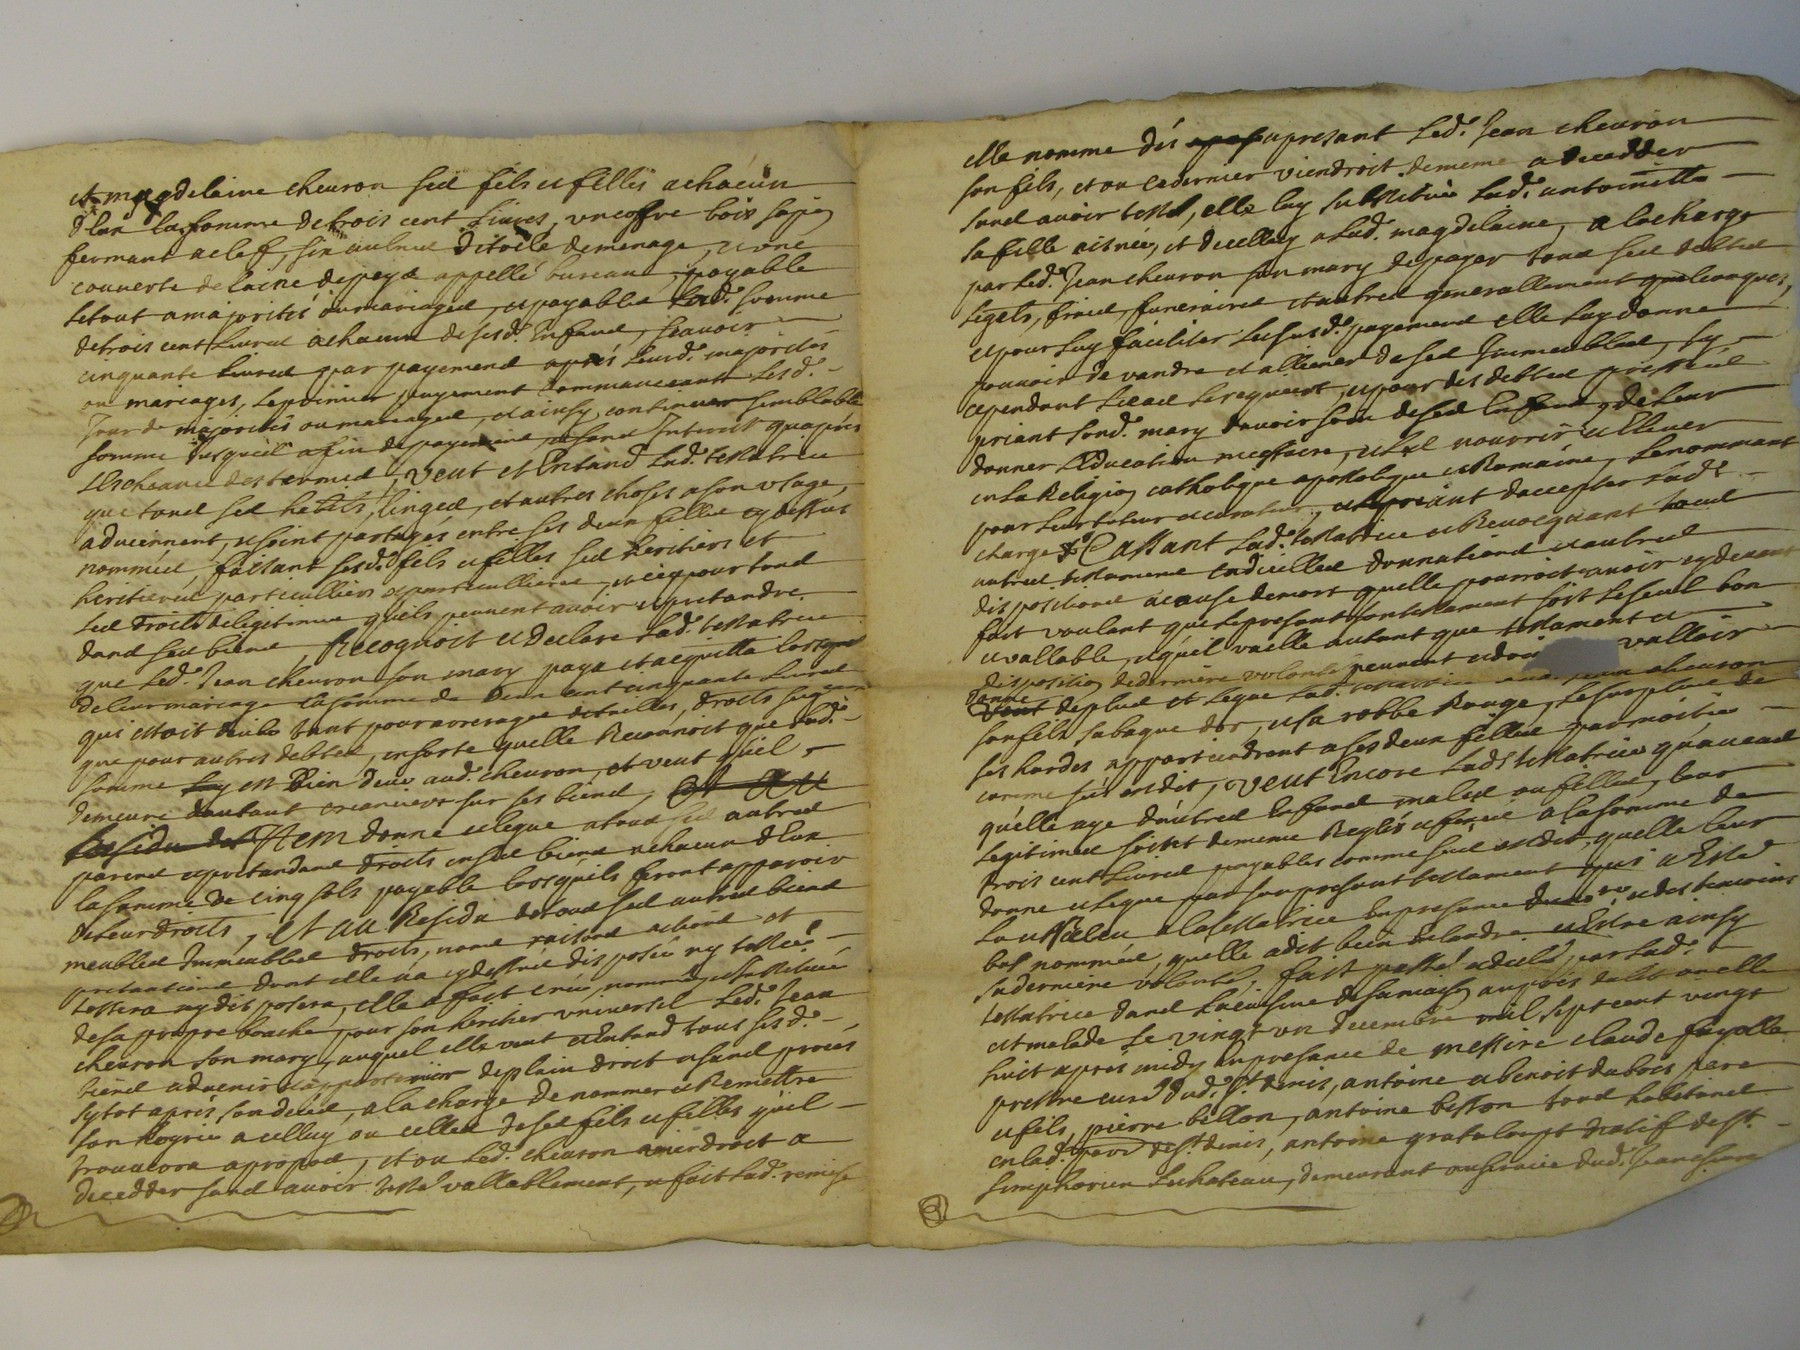 et magdelaine cheuron ses fils et filles a chacun
d'Eux la somme de trois cent Liures, vn coffre bois sapin
fermant a clef, six aulnes de toile de menage, et vne
couuerte de laine de pays appellé bureau, payable
le tout a majorités ou mariages, et payables Lad.e somme
de trois cent Liures a chacun de sesd. Enfans, scauoir
cinquante Liures par payemens après Leursd. majorités
ou mariages, Le premier payement commanceant Lesd.
Jour de majorités ou mariages, et ainsy continuer semblable
somme jusqu'a fin de payement, et sans Interest qu'aprés
L'Escheance des termes, veut et Entand Lad.e testatrice
que tous ses habits, linges, et autres choses a son vsage,
aduiennent, et soint partagés entre ses deux filles cy dessus
nommées, faisant sesd. fils et filles ses heritiers et
heritieres particulliers et particullieres, et ce pour tous
Les droits de legitime qu'ils peuuent auoir et pretandre
dans ses biens, Recognoit et declare Lad.e testatrice
que Led. Jean cheuron son mary paya et acquitta lors
de leur mariage la somme de deux cent cinquante Liures
qui estoit deube tant pour arrerages de tailles, droits seigneuriaux
que pour autres debtes, en sorte quelle Reconnoit que lad.e
somme Luy est bien deue aud. cheuron, et veut quil
demeure d'autant creancier sur ses biens,
Item donne et legue a tous ses autres
parens et pretandans droits en ses biens a chacun d'Eux
la somme de cinq sols payable lorsqu'ils feront apparoir
de leur droits, Et au Residu de tous ses autres biens
meubles Immeubles droits, noms raisons actions et
pretantions dont elle n'a cy dessus disposée ny testée
testera ny disposera, elle a fait créé, nommé, et Institué
de sa propre bouche pour son heritier vniuersel Led. Jean
cheuron son mary, auquel elle veut et Entand tous sesd.
biens aduenir et appartenir de plain droit et sans procés
sytot aprés son decés, a la charge de nommer et Remettre
son hoyrie a celluy ou celles de ses fils et filles qu'il
trouuera a propos, et ou Led. cheuron viendroit a
decedder sans auoir testé vallablement, et fait Lad. remise
elle nomme dés apresant Led. Jean cheuron
son fils, et ou ce dernier viendroit de meme a decedder
sans auoir testé, elle luy substitue Lad.e antoinette
sa fille aisnée, et d'icelluy a Lad. magdelaine, a la charge
par Led. Jean cheuron son mary de payer tous ses debtes
Legats, frais, funeraires et autres generallement quelconques,
et pour Luy faciliter Lesusd. payemens elle Luy donne
pouuoir de vandre et alliener de ses Immeubles, sy
cependant Le cas Le requiert, et pour des debtes
priant sond. mary d'auoir soin de ses Enfans, de Leur
donner L'Education necessaire, et Les nourrir et Eleuer
en La Religion catholique apostolique et Romaine, Le nommant
pour Leur tuteur et curateur, et Le priant d'accepter Lad.e
charge Cassant Lad.e testatrice et Reuocquant tous
autres testamens codicilles donnations et autres
dispositions a cause de mort quelle pourroit auoir cy deuant
fait voulant que Le present son testament soit Le seul bon
et vallable, et qu'il vaille autant que testament et
disposition de derniere volonté peuuent et doi valloir
donne de plus et Legue Lad. testatrice aud. Jean cheuron
son fils sa bague d'or, et sa robbe Rouge, Le surplus de
ses hardes appartiendront a ses deux filles par moitié
comme sus est dit, Veut Encore Lad.e testatrice qu'au cas
qu'elle aye d'autres Enfans males ou filles, leur
Legitimes soient de meme Reglés et fixés a la somme de
trois cent Liures payables comme sus est dit, quelle leur
donne et Legue par son present testament qui a Esté
Lu et Releu a la testatrice En presence dud. no.re et des temoins
bas nommés, quelle a dit bien Entandre et Estre ainsy
sa derniere volonté, fait passé et dicté par Lad.e
testatrice dans La cuisine de sa maison auprés du lit ou elle
est malade Le vingt un decembre mil sept cent vingt
huit aprés midy En presence de messire claude fayolle
prestre curé dud. St. denis, antoine et benoit dubois pere
et fils, pierre billon, antoine besson tous habitans
en lad. parr. de St. denis, antoine grataloup natif de St.
simphorien Le chateau, demeurant au seruice dud.